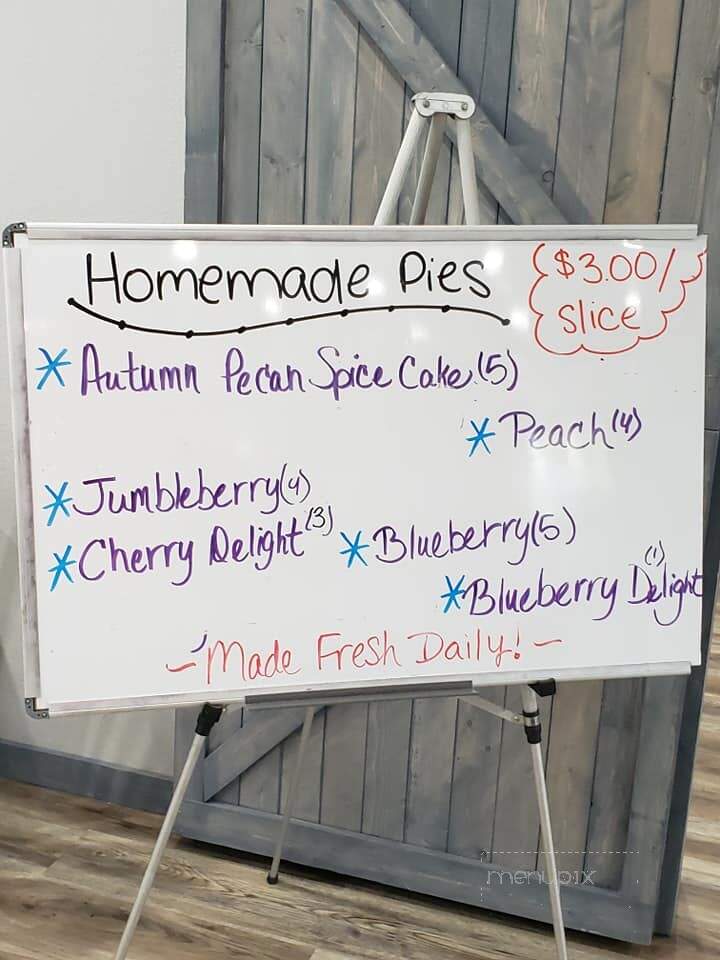 Homemade Pies
$3.00/
slice
* Autumn Pecan Spice Cake (5)
* Peach (4)
* Jumbleberry (4)
* Cherry Delight (3)
* Blueberry (5)
* Blueberry Delight (1)
- Made Fresh Daily! -
menupix